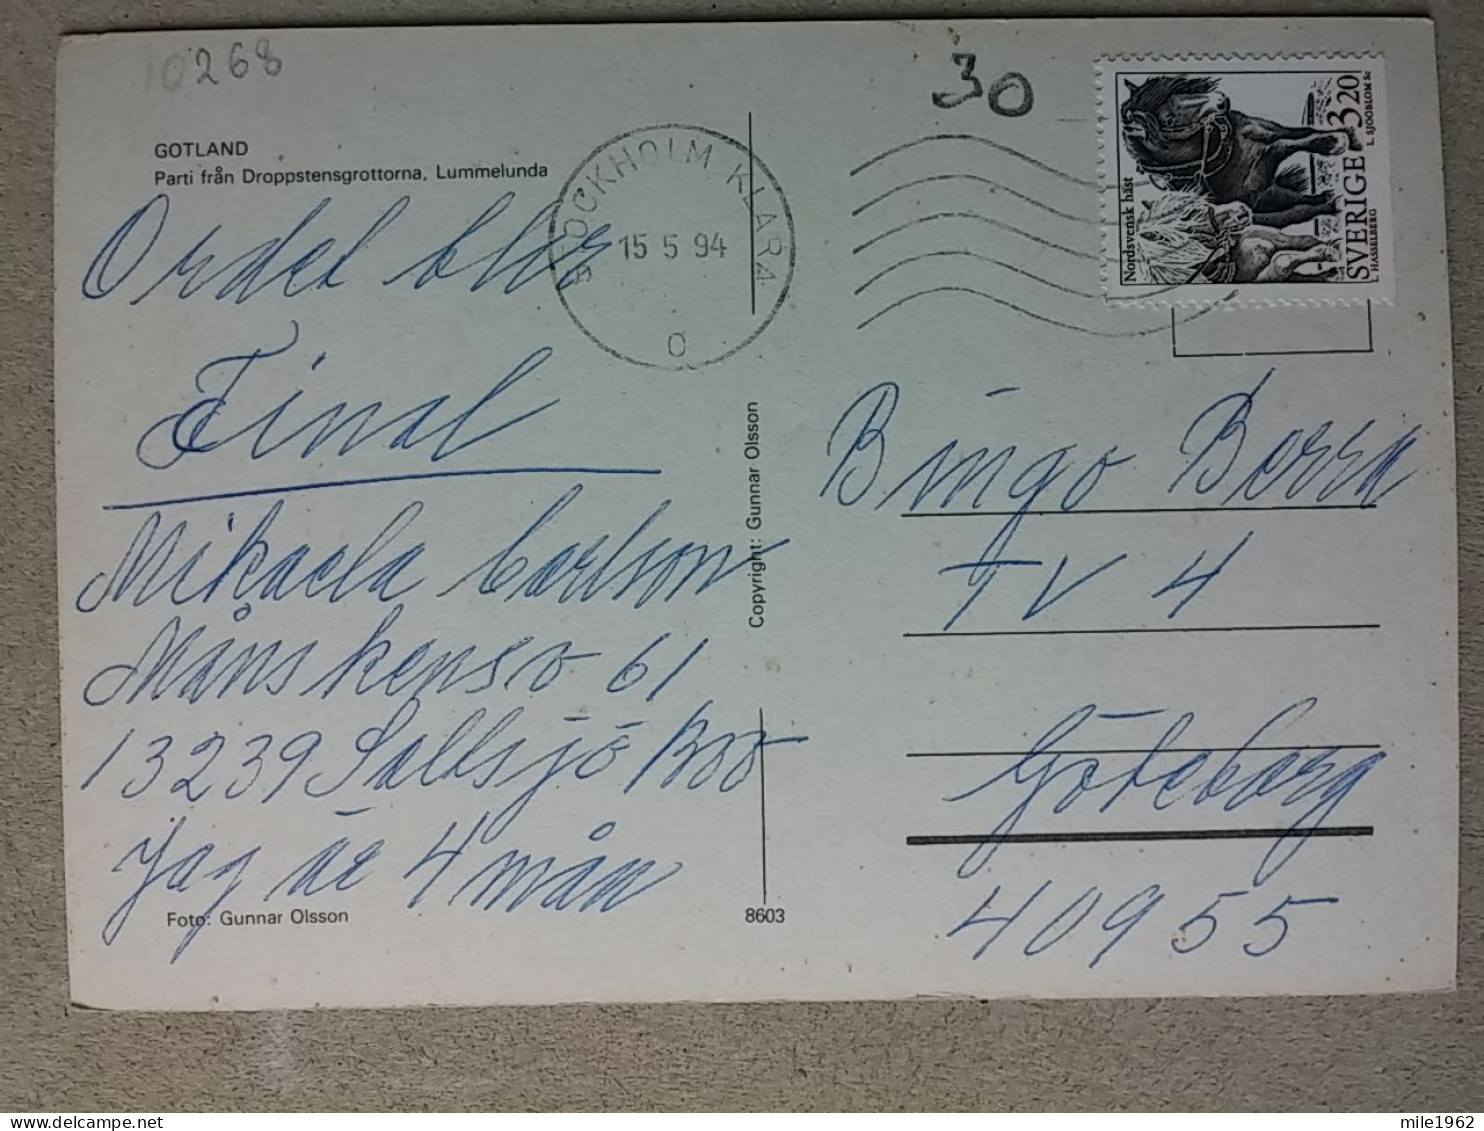 10268
30
GOTLAND
Parti från Droppstensgrottorna, Lummelunda
STOCKHOLM KLARA
15 5 94
Nordsvensk häst
SVERIGE 3,20
L. HASSELBERG
L. SJÖÖBLOM Sc
Ordet blir
Final
Mikaela Carlson
Månskensv 61
13239 Saltsjö Boo
Jag är 4 mån
Foto: Gunnar Olsson
8603
Copyright: Gunnar Olsson
Bingo Berra
TV 4
Göteborg
40955
mile1962